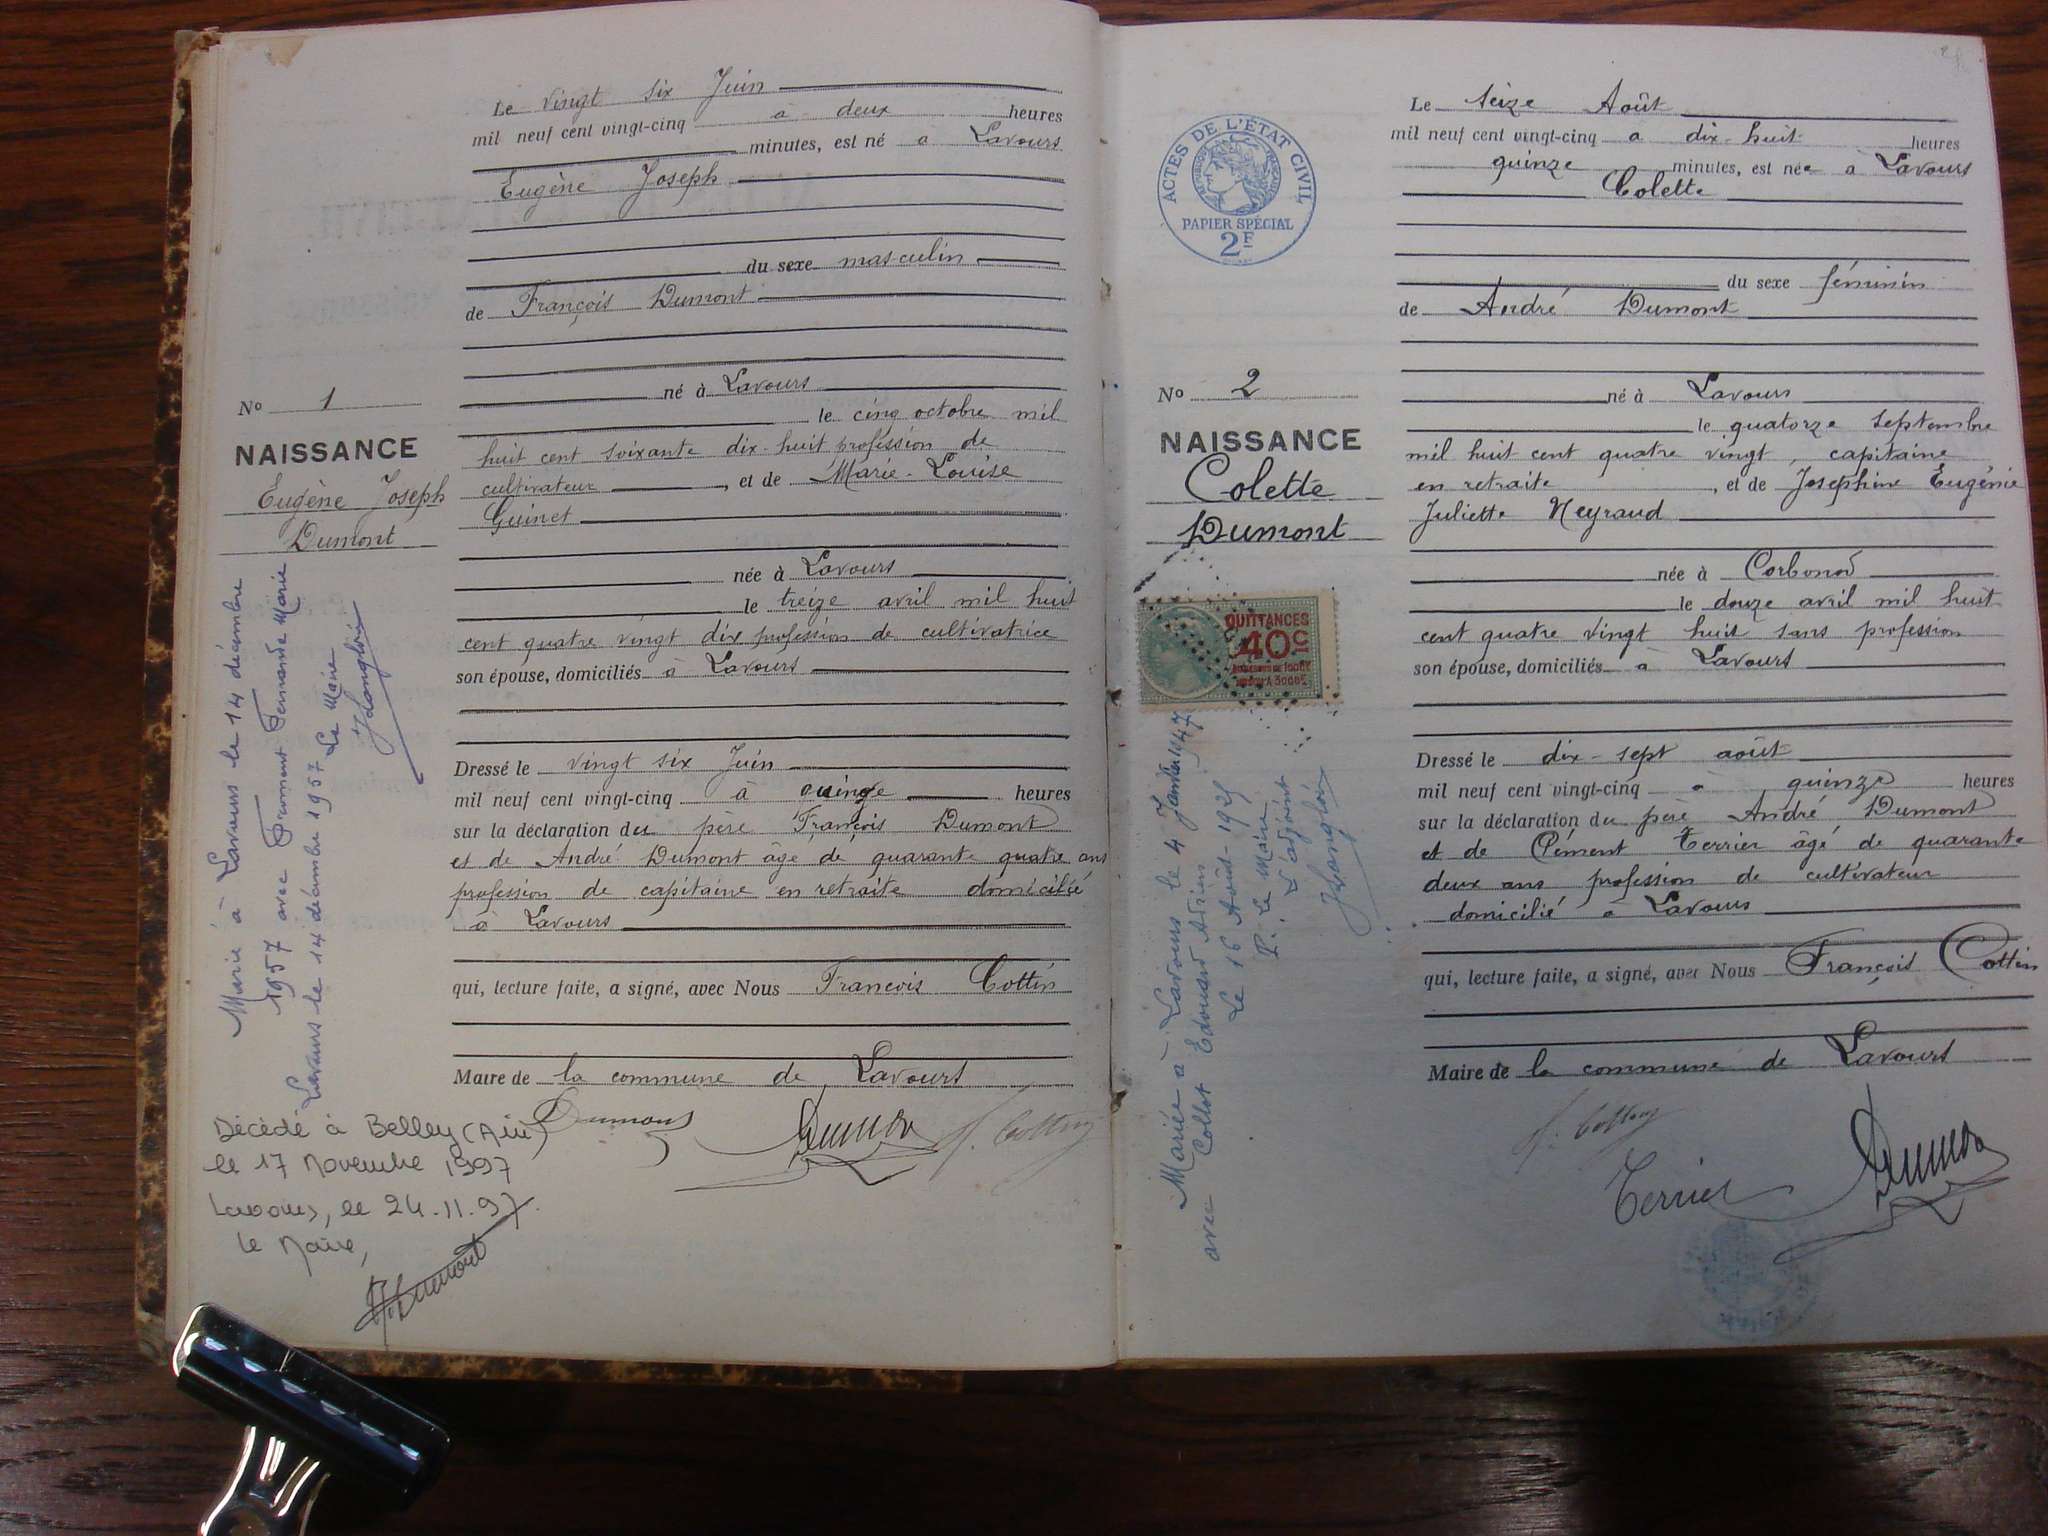 Le vingt six Juin
mil neuf cent vingt-cinq à deux heures
minutes, est né à Lavours
Eugène Joseph
du sexe masculin
de François Dumont
né à Lavours
le cinq octobre mil
huit cent soixante dix-huit profession de
cultivateur, et de Marie-Louise
Guinet
née à Lavours
le treize avril mil huit
cent quatre vingt dix profession de cultivatrice
son épouse, domiciliés à Lavours
Dressé le vingt six Juin
mil neuf cent vingt-cinq à quinze heures
sur la déclaration du père François Dumont
et de André Dumont âge de quarante quatre ans
profession de capitaine en retraite domicilié
à Lavours
qui, lecture faite, a signé, avec Nous François Cottin
Maire de la commune de Lavours
Dumont
Dumont
F. Cottin
No 1
NAISSANCE
Eugène Joseph
Dumont
Marié à Lavours le 14 décembre
1957 avec Fernande Marie
Lavours le 14 décembre 1957 Le Maire
Décédé à Belley (Ain)
le 17 Novembre 1997
Lavours, le 24.11.97.
Le Maire,
Dumont
ACTES DE L'ÉTAT CIVIL
PAPIER SPÉCIAL
2F
Le seize Août
mil neuf cent vingt-cinq a dix-huit heures
quinze minutes, est née à Lavours
Colette
du sexe féminin
de André Dumont
né à Lavours
le quatorze septembre
mil huit cent quatre vingt, capitaine
en retraite, et de Josephine Eugénie
Juliette Neyraud
née à Corbonod
le douze avril mil huit
cent quatre vingt huit sans profession
son épouse, domiciliés à Lavours
Dressé le dix-sept août
mil neuf cent vingt-cinq à quinze heures
sur la déclaration du père André Dumont
et de Clément Terrier âgé de quarante
deux ans profession de cultivateur
domicilié à Lavours
qui, lecture faite, a signé, avec Nous François Cottin
Maire de la commune de Lavours
F. Cottin
Terrier
Dumont
No 2
NAISSANCE
Colette
Dumont
QUITTANCES
40c
Mariée à Lavours le 4 Janvier 1947
avec Collot Edouard Adrien
Le 16 Août 1925
P. Le Maire
L'adjoint